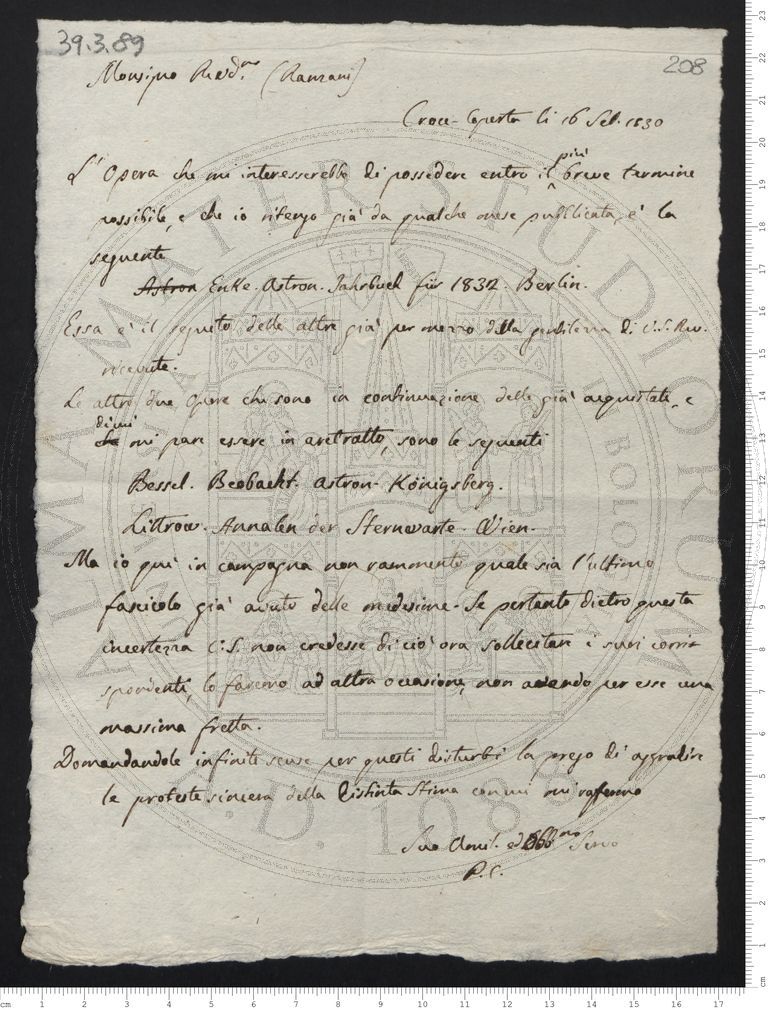 39.3.89
208
Monsigno Revd.mo (Ranzani)
Croce-Coperta li 16 Set. 1830
L'Opera che mi interesserebbe di possedere entro il più breve termine
possibile, e che io ritengo già da qualche mese pubblicata, è la
seguente
Astron Enke. Astron. Jahrbuch für 1832. Berlin.
Essa è il seguito delle altre già per mezzo della gentilezza di V.S. Rev.
ricevute.
Le altre due Opere che sono in continuazione delle già acquistate, e
di cui mi pare essere in aretratto, sono le seguenti
Bessel. Beobacht. Astron. Königsberg.
Littrow. Annalen der Sternwarte. Wien.
Ma io quì in campagna non rammento quale sia l'ultimo
fascicolo già avuto delle medesime. Se pertanto dietro questa
incertezza V.S. non credesse di ciò ora sollecitare i suoi corri-
spondenti, lo faremo ad altra occasione, non avendo per esse una
massima fretta.
Domandandole infinite scuse per questi disturbi la prego di aggradire
le proteste sincere della distinta stima con cui mi raffermo
Suo Umil. ed Obb.mo Servo
P.C.
ALMA MATER STUDIORUM
BOLOGNA
A.D. 1088